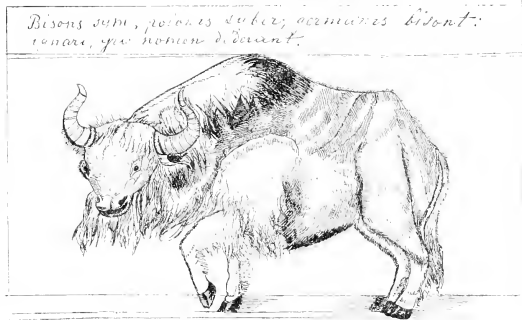 Bisons sum, polonis suber, germanis bisont:
ignari, nomen dederant.